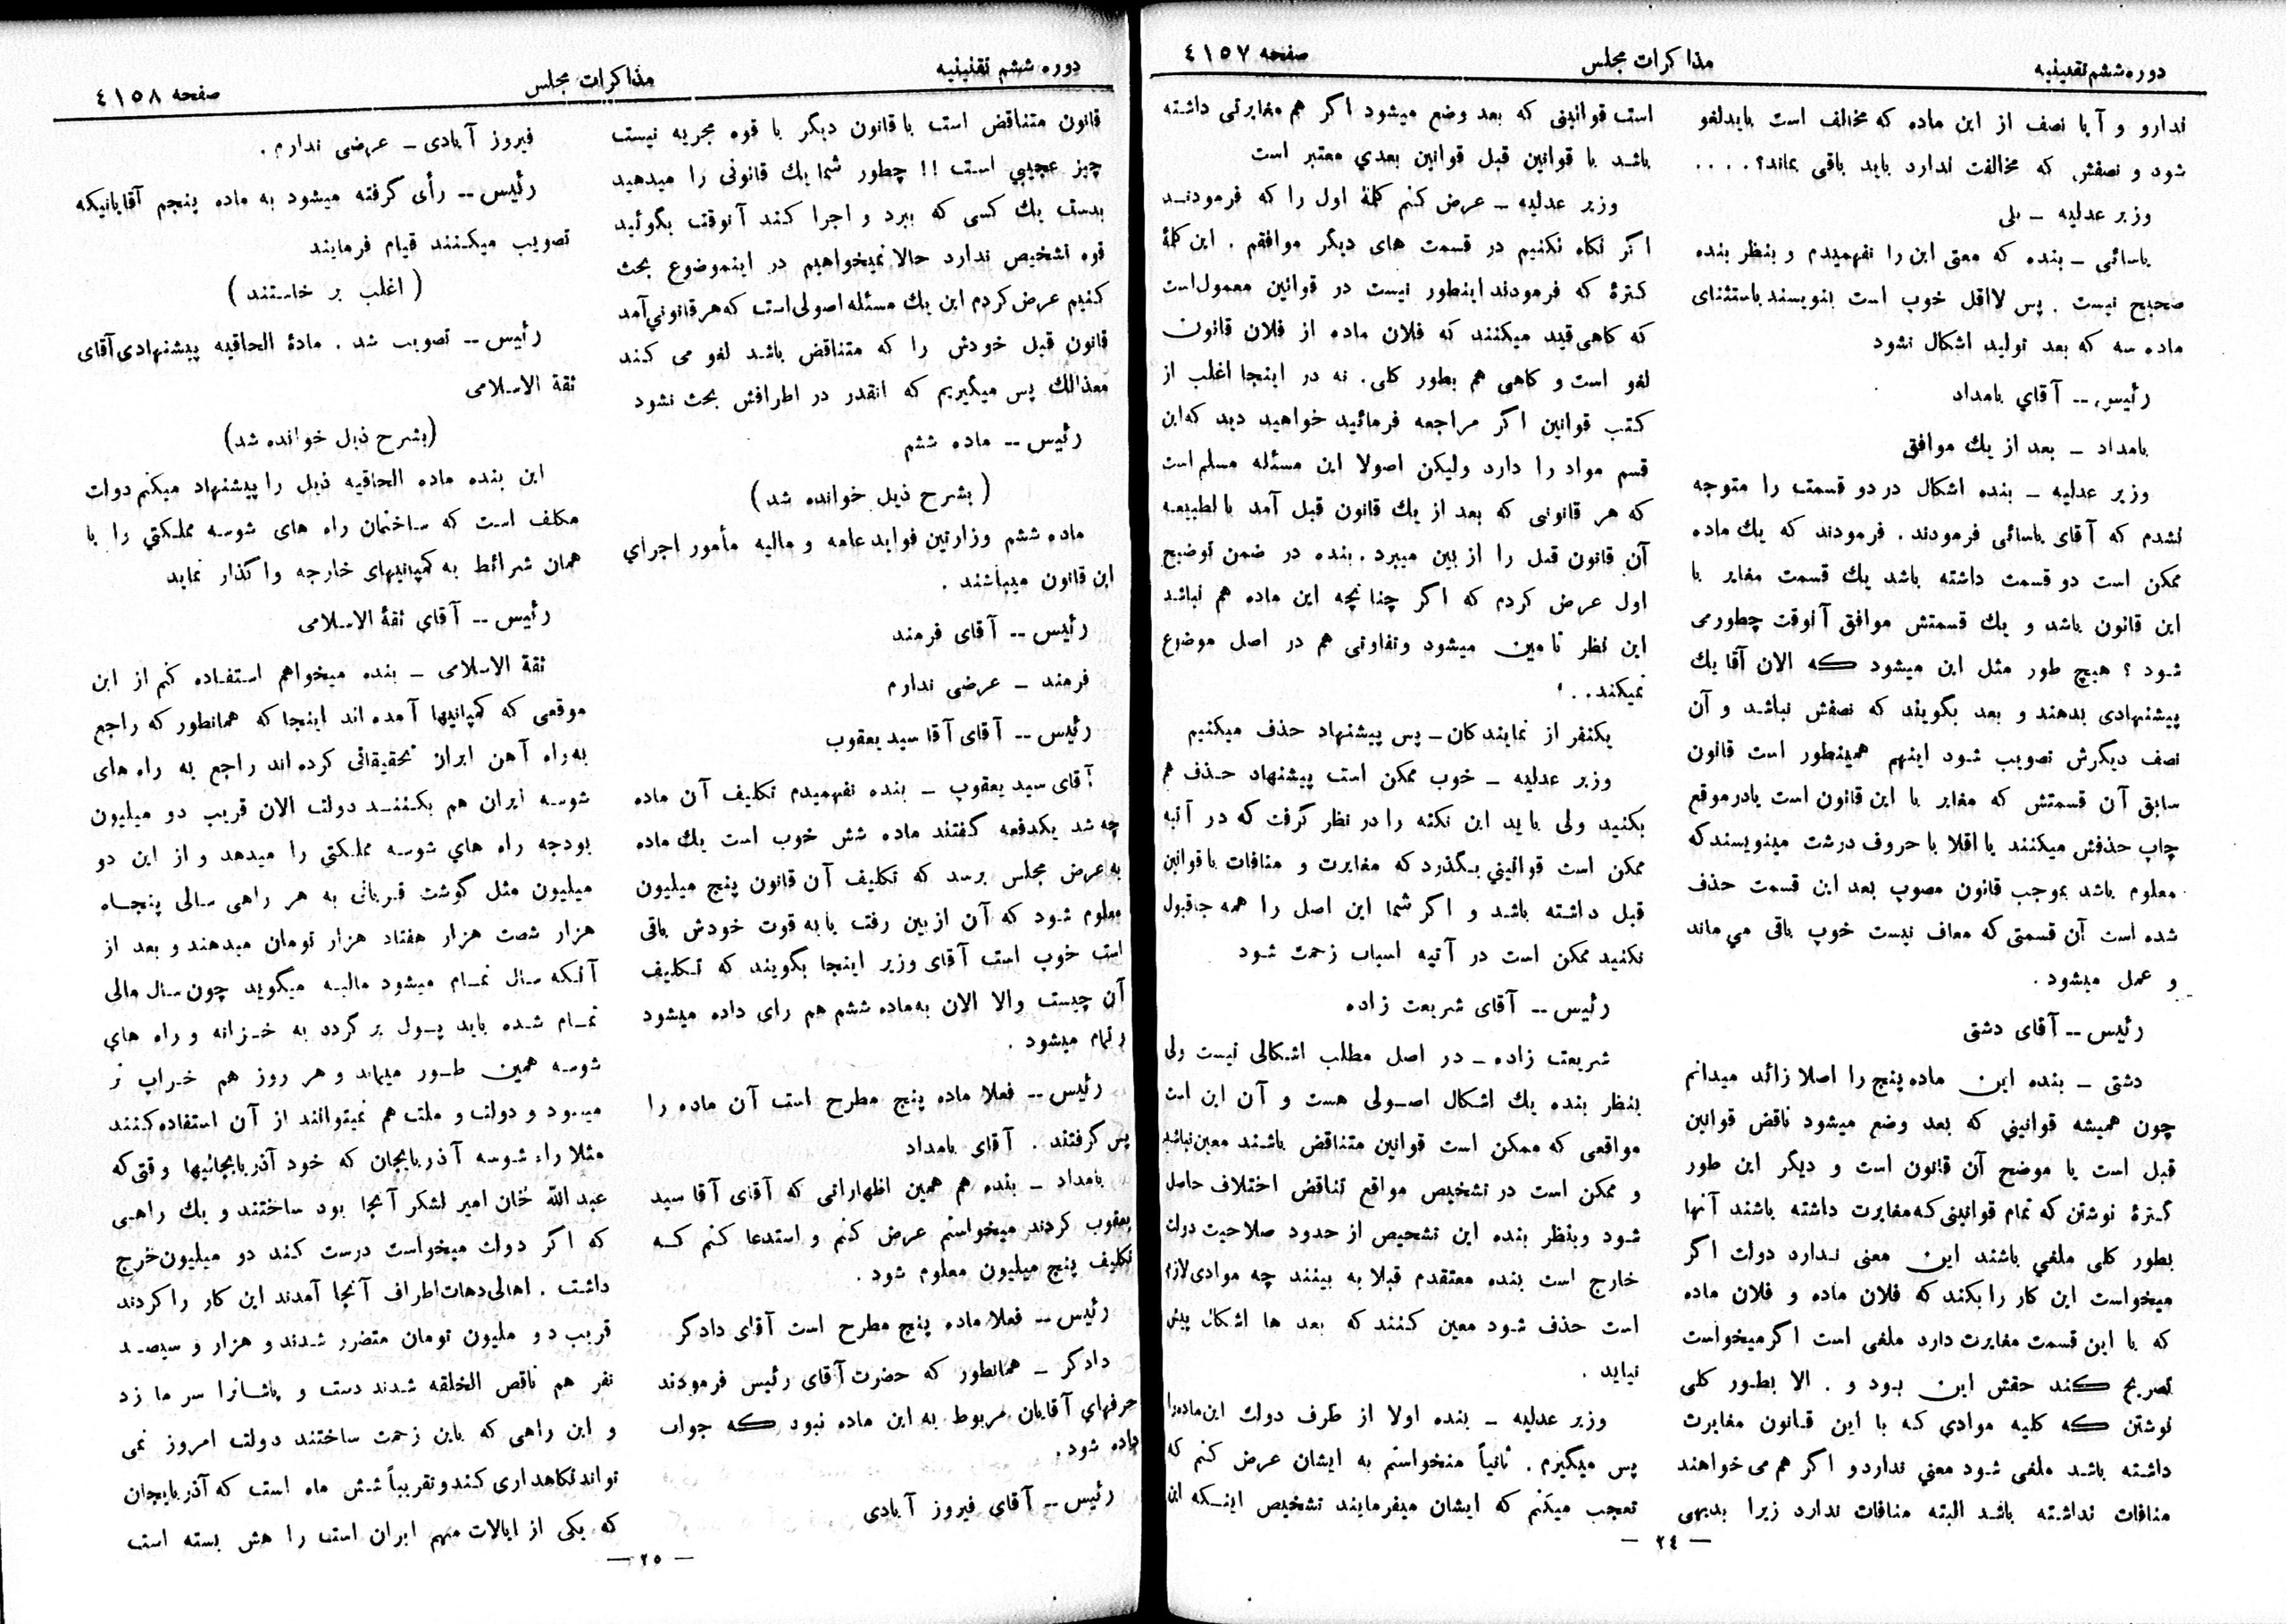 دوره ششم تقنینیه
مذاکرات مجلس
صفحه ٤١٥٧
ندارو و آیا نصف از این ماده که مخالف است باید لغو
شود و نصفش که مخالفت ندارد باید باقی بماند؟ . . . .
وزیر عدلیه ــ بلی
یاسائی ــ بنده که معنی این را نفهمیدم و بنظر بنده
صحیح نیست . پس لااقل خوب است بنویسند باستثنای
ماده سه که بعد تولید اشکال نشود
رئیس ــ آقای بامداد
بامداد ــ بعد از یك موافق
وزیر عدلیه ــ بنده اشکال در دو قسمت را متوجه
نشدم که آقای یاسائی فرمودند . فرمودند که یك ماده
ممکن است دو قسمت داشته باشد یك قسمت مغایر با
این قانون باشد و یك قسمتش موافق آنوقت چطورمی
شود ؟ هیچ طور مثل این میشود که الان آقا یك
پیشنهادی بدهند و بعد بگویند که نصفش نباشد و آن
نصف دیگرش تصویب شود اینهم همینطور است قانون
سابق آن قسمتش که مغایر با این قانون است یادرموقع
چاپ حذفش میکنند یا اقلا با حروف درشت مینویسند که
معلوم باشد بموجب قانون مصوب بعد این قسمت حذف
شده است آن قسمتی که معاف نیست خوب باقی می ماند
و عمل میشود .
رئیس ــ آقای دشتی
دشتی ــ بنده این ماده پنج را اصلا زائد میدانم
چون همیشه قوانینی که بعد وضع میشود ناقض قوانین
قبل است یا موضح آن قانون است و دیگر این طور
گتره نوشتن که تمام قوانینی که مغایرت داشته باشند آنها
بطور کلی ملغی باشند این معنی ندارد دولت اگر
میخواست این کار را بکند که فلان ماده و فلان ماده
که با این قسمت مغایرت دارد ملغی است اگر میخواست
تصریح کند حقش این بود و . الا بطور کلی
نوشتن که کلیه موادی که با این قانون مغایرت
داشته باشد ملغی شود معنی ندارد و اگر هم می خواهند
منافات نداشته باشد البته منافات ندارد زیرا بدیهی
است قوانینی که بعد وضع میشود اگر هم مغایرتی داشته
باشد با قوانین قبل قوانین بعدی معتبر است
وزیر عدلیه ــ عرض کنم کلمهٔ اول را که فرمودند
اگر نگاه نکنیم در قسمت های دیگر موافقم . این کلمهٔ
گترهٔ که فرمودند اینطور نیست در قوانین معمول است
که گاهی قید میکنند که فلان ماده از فلان قانون
لغو است و گاهی هم بطور کلی . نه در اینجا اغلب از
کتب قوانین اگر مراجعه فرمائید خواهید دید که این
قسم مواد را دارد ولیکن اصولا این مسئله مسلم است
که هر قانونی که بعد از یك قانون قبل آمد بالطبیعه
آن قانون قبل را از بین میبرد . بنده در ضمن توضیح
اول عرض کردم که اگر چنانچه این ماده هم نباشد
این نظر تامین میشود وتفاوتی هم در اصل موضوع
نمیکند . .
یکنفر از نمایندکان ــ پس پیشنهاد حذف میکنیم
وزیر عدلیه ــ خوب ممکن است پیشنهاد حذف هم
بکنید ولی باید این نکته را در نظر گرفت که در آتیه
ممکن است قوانینی بگذرد که مغایرت و منافات با قوانین
قبل داشته باشد و اگر شما این اصل را همه جا قبول
نکنید ممکن است در آتیه اسباب زحمت شود
رئیس ــ آقای شریعت زاده
شریعت زاده ــ در اصل مطلب اشکالی نیست ولی
بنظر بنده یك اشکال اصولی هست و آن این است
مواقعی که ممکن است قوانین متناقض باشند معین نباشد
و ممکن است در تشخیص مواقع تناقض اختلاف حاصل
شود وبنظر بنده این تشخیص از حدود صلاحیت دولت
خارج است بنده معتقدم قبلا به بینند چه موادی لازم
است حذف شود معین کنند که بعد ها اشکال پیش
نیاید .
وزیر عدلیه ــ بنده اولا از طرف دولت این ماده را
پس میگیرم . ثانیاً منخواستم به ایشان عرض کنم که
تعجب میکنم که ایشان میفرمایند تشخیص اینکه این
ــ ٢٤ ــ
دوره ششم تقنینیه
مذاکرات مجلس
صفحه ٤١٥٨
قانون متناقض است با قانون دیگر با قوه مجریه نیست
چیز عجیبی است !! چطور شما یك قانونی را میدهید
بدست یك کسی که ببرد و اجرا کند آنوقت بگوئید
قوه تشخیص ندارد حالا نمیخواهیم در اینموضوع بحث
کنیم عرض کردم این یك مسئله اصولی است که هر قانونی آمد
قانون قبل خودش را که متناقض باشد لغو می کند
معذالك پس میگیریم که انقدر در اطرافش بحث نشود
رئیس ــ ماده ششم
( بشرح ذیل خوانده شد )
ماده ششم وزارتین فواید عامه و مالیه مأمور اجرای
این قانون میباشند .
رئیس ــ آقای فرمند
فرمند ــ عرضی ندارم
رئیس ــ آقای آقا سید یعقوب
آقای سید یعقوب ــ بنده نفهمیدم تکلیف آن ماده
چه شد یکدفعه گفتند ماده شش خوب است یك ماده
به عرض مجلس برسد که تکلیف آن قانون پنج میلیون
معلوم شود که آن از بین رفت یا به قوت خودش باقی
است خوب است آقای وزیر اینجا بگویند که تکلیف
آن چیست والا الان به ماده ششم هم رای داده میشود
و تمام میشود .
رئیس ــ فعلا ماده پنج مطرح است آن ماده را
پس گرفتند . آقای بامداد
بامداد ــ بنده هم همین اظهاراتی که آقای آقا سید
یعقوب کردند میخواستم عرض کنم و استدعا کنم که
تکلیف پنج میلیون معلوم شود .
رئیس ــ فعلا ماده پنج مطرح است آقای دادگر
دادگر ــ همانطور که حضرت آقای رئیس فرمودند
حرفهای آقایان مربوط به این ماده نبود که جواب
داده شود .
رئیس ــ آقای فیروز آبادی
فیروز آبادی ــ عرضی ندارم .
رئیس ــ رأی گرفته میشود به ماده پنجم آقایانیکه
تصویب میکنند قیام فرمایند
( اغلب بر خاستند )
رئیس ــ تصویب شد . مادهٔ الحاقیه پیشنهادی آقای
ثقة الاسلامی
(بشرح ذیل خوانده شد)
این بنده ماده الحاقیه ذیل را پیشنهاد میکنم دولت
مکلف است که ساختمان راه های شوسه مملکتی را با
همان شرائط به کمپانیهای خارجه واگذار نماید
رئیس ــ آقای ثقة الاسلامی
ثقة الاسلامی ــ بنده میخواهم استفاده کنم از این
موقعی که کمپانیها آمده اند اینجا که همانطور که راجع
به راه آهن ایران تحقیقاتی کرده اند راجع به راه های
شوسه ایران هم بکنند دولت الان قریب دو میلیون
بودجه راه های شوسه مملکتی را میدهد و از این دو
میلیون مثل گوشت قربانی به هر راهی سالی پنجاه
هزار شصت هزار هفتاد هزار تومان میدهند و بعد از
آنکه سال تمام میشود مالیه میگوید چون سال مالی
تمام شده باید پول برگردد به خزانه و راه های
شوسه همین طور میماند و هر روز هم خراب تر
میشود و دولت و ملت هم نمیتوانند از آن استفاده کنند
مثلا راه شوسه آذربایجان که خود آذربایجانیها وقتی که
عبدالله خان امیر لشکر آنجا بود ساختند و یك راهی
که اگر دولت میخواست درست کند دو میلیون خرج
داشت . اهالی دهات اطراف آنجا آمدند این کار را کردند
قریب دو ملیون تومان متضرر شدند و هزار و سیصد
نفر هم ناقص الخلقه شدند دست و پاشانرا سر ما زد
و این راهی که باین زحمت ساختند دولت امروز نمی
تواند نگاهداری کند و تقریباً شش ماه است که آذربایجان
که یکی از ایالات مهم ایران است را هش بسته است
ــ ٢٥ ــ